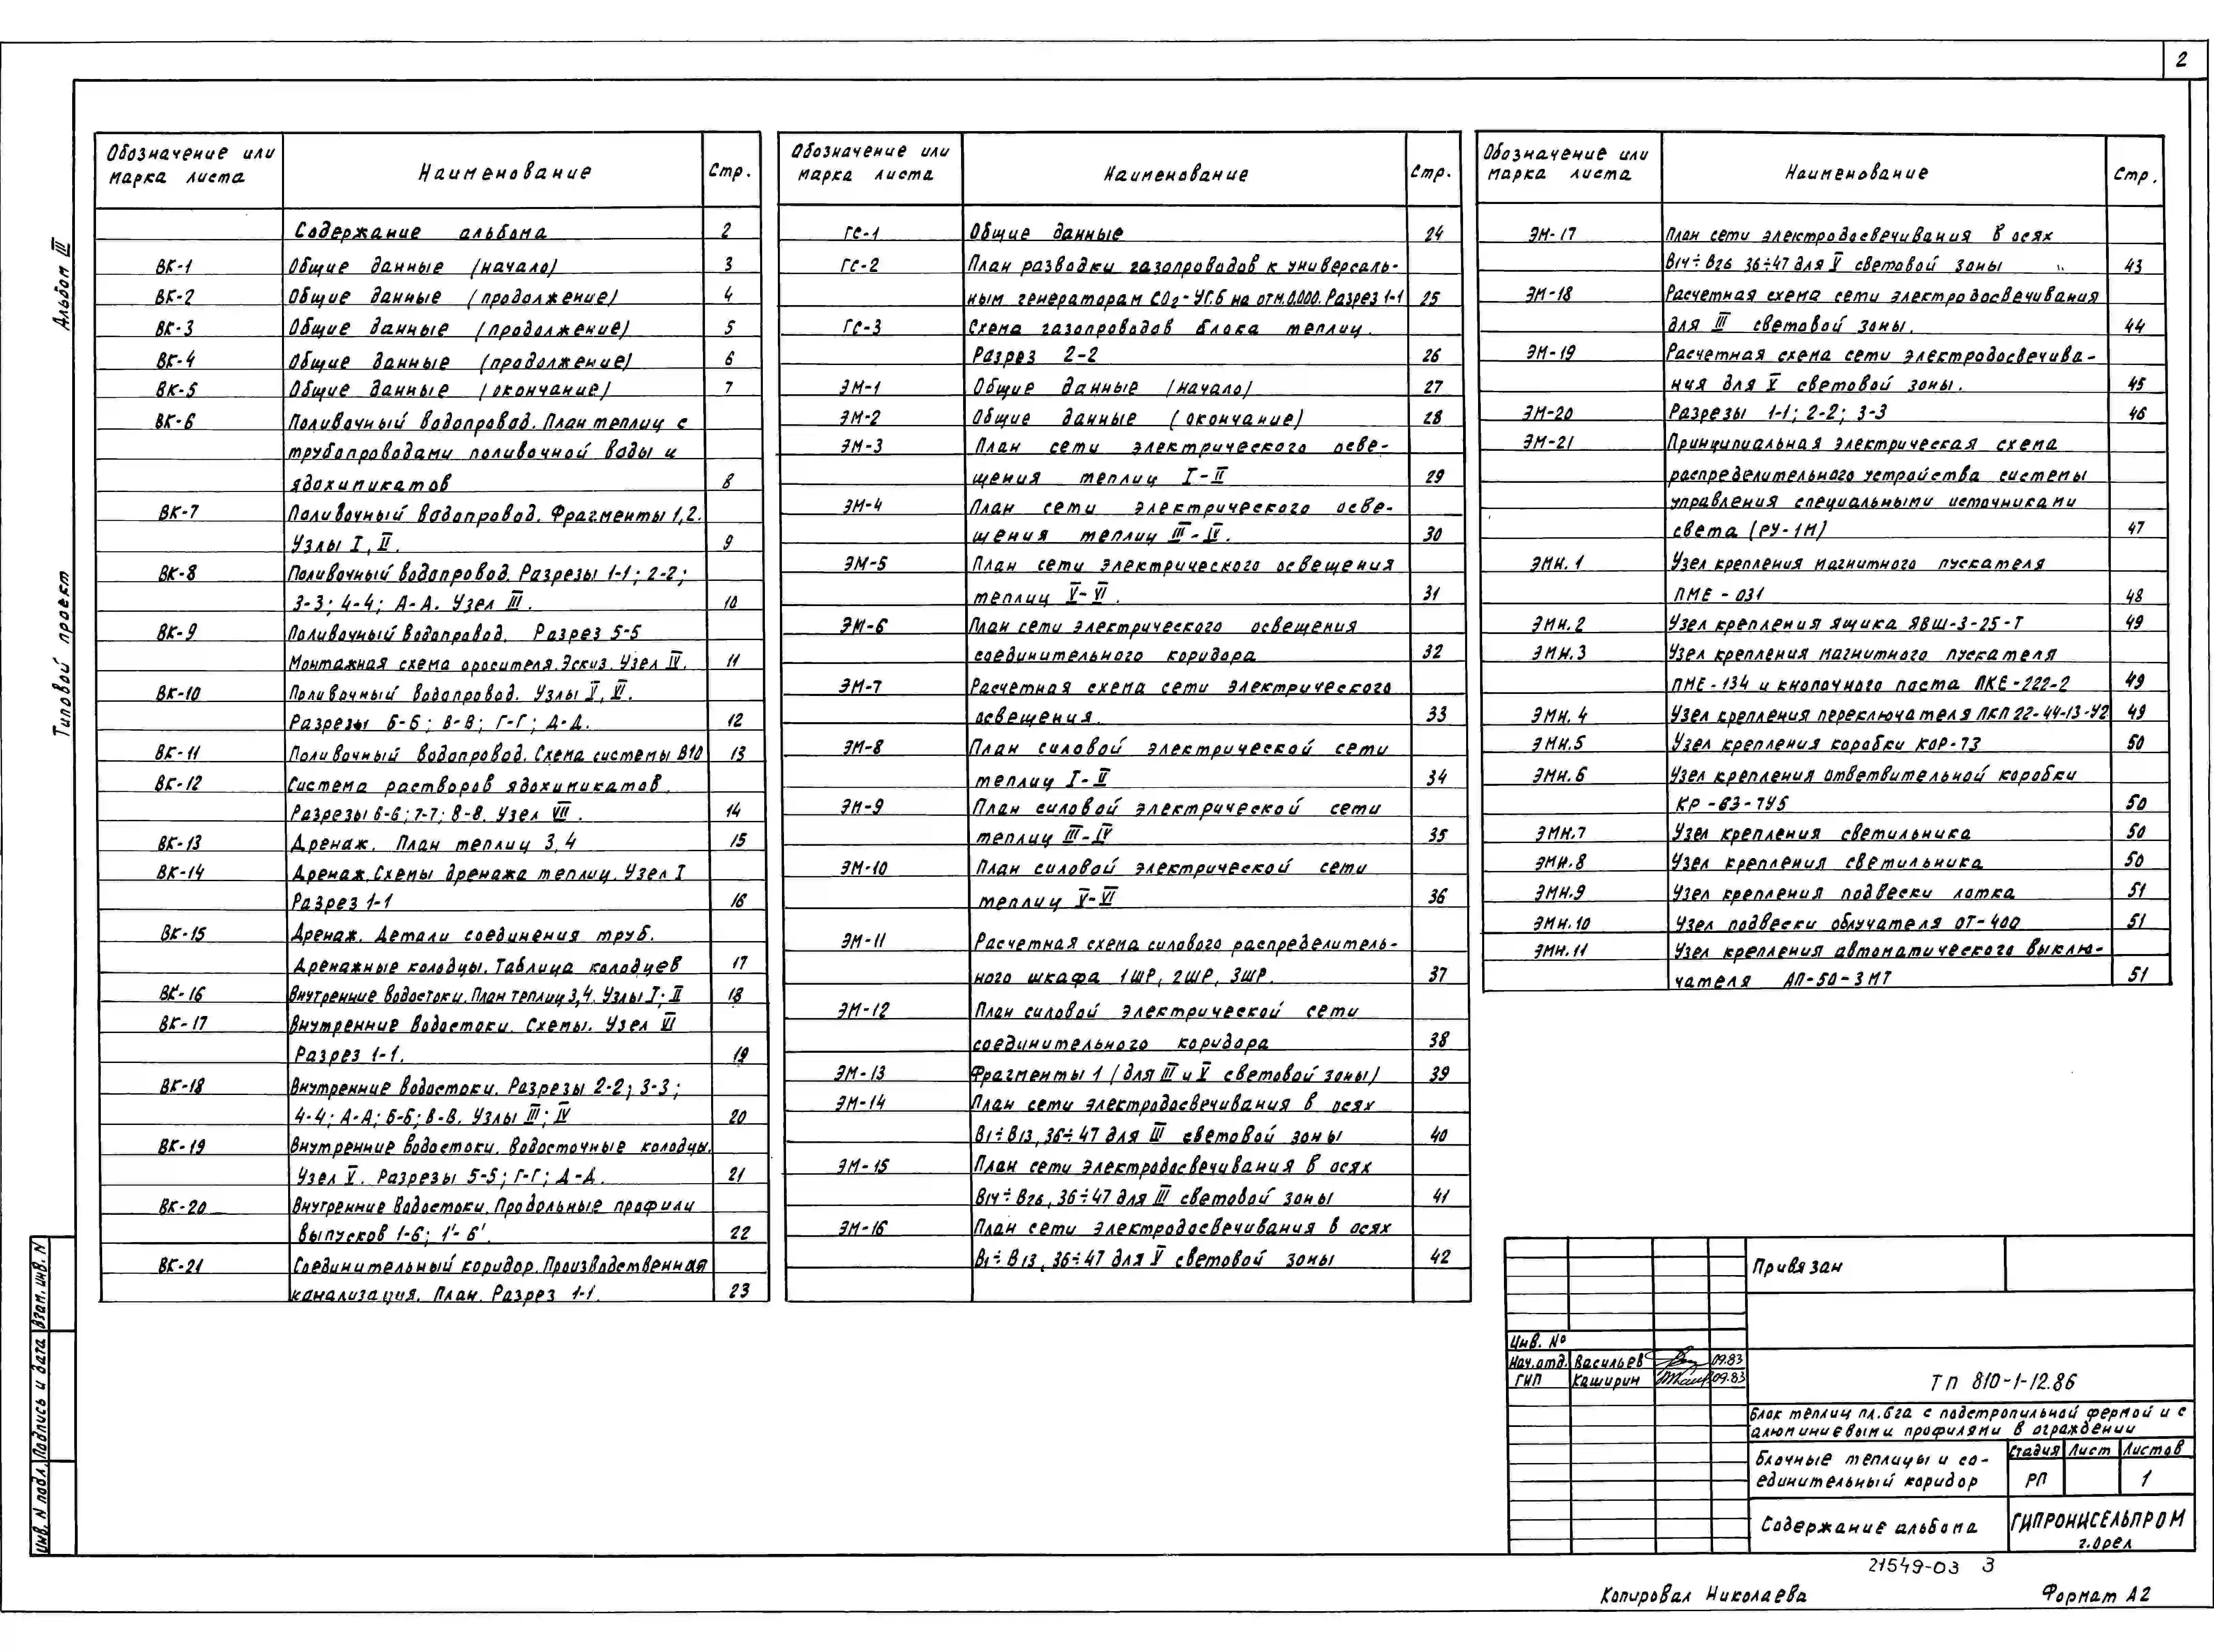 2
Альбом III
Типовой проект
Обозначение или марка листа | Наименование | Стр.
Содержание альбома 2
ВК-1 Общие данные (начало) 3
ВК-2 Общие данные (продолжение) 4
ВК-3 Общие данные (продолжение) 5
ВК-4 Общие данные (продолжение) 6
ВК-5 Общие данные (окончание) 7
ВК-6 Поливочный водопровод. План теплиц с
трубопроводами поливочной воды и
ядохимикатов 8
ВК-7 Поливочный водопровод. Фрагменты 1,2.
Узлы I, II. 9
ВК-8 Поливочный водопровод. Разрезы 1-1; 2-2;
3-3; 4-4; А-А. Узел III. 10
ВК-9 Поливочный водопровод. Разрез 5-5
Монтажная схема оросителя. Эскиз. Узел IV. 11
ВК-10 Поливочный водопровод. Узлы V, VI.
Разрезы Б-Б; В-В; Г-Г; Д-Д. 12
ВК-11 Поливочный водопровод. Схема системы В10 13
ВК-12 Система растворов ядохимикатов.
Разрезы 6-6; 7-7; 8-8. Узел VII. 14
ВК-13 Дренаж. План теплиц 3,4 15
ВК-14 Дренаж. Схемы дренажа теплиц. Узел I
Разрез 1-1 16
ВК-15 Дренаж. Детали соединения труб.
Дренажные колодцы. Таблица колодцев 17
ВК-16 Внутренние водостоки. План теплиц 3,4. Узлы I; II 18
ВК-17 Внутренние водостоки. Схемы. Узел VI
Разрез 1-1. 19
ВК-18 Внутренние водостоки. Разрезы 2-2; 3-3;
4-4; А-А; Б-Б; В-В. Узлы III; IV 20
ВК-19 Внутренние водостоки. Водосточные колодцы.
Узел V. Разрезы 5-5; Г-Г; Д-Д. 21
ВК-20 Внутренние водостоки. Продольные профили
выпусков 1-6; 1'-6'. 22
ВК-21 Соединительный коридор. Производственная
канализация. План. Разрез 1-1. 23
Обозначение или марка листа | Наименование | Стр.
ГС-1 Общие данные 24
ГС-2 План разводки газопроводов к универсаль-
ным генераторам СО2-УГ.6 на отм. 0.000. Разрез 1-1 25
ГС-3 Схема газопроводов блока теплиц.
Разрез 2-2 26
ЭМ-1 Общие данные (начало) 27
ЭМ-2 Общие данные (окончание) 28
ЭМ-3 План сети электрического осве-
щения теплиц I-II 29
ЭМ-4 План сети электрического осве-
щения теплиц III-IV. 30
ЭМ-5 План сети электрического освещения
теплиц V-VI. 31
ЭМ-6 План сети электрического освещения
соединительного коридора 32
ЭМ-7 Расчетная схема сети электрического
освещения. 33
ЭМ-8 План силовой электрической сети
теплиц I-II 34
ЭМ-9 План силовой электрической сети
теплиц III-IV 35
ЭМ-10 План силовой электрической сети
теплиц V-VI 36
ЭМ-11 Расчетная схема силового распределитель-
ного шкафа 1ШР, 2ШР, 3ШР. 37
ЭМ-12 План силовой электрической сети
соединительного коридора 38
ЭМ-13 Фрагменты 1 (для III и V световой зоны) 39
ЭМ-14 План сети электродосвечивания в осях
В1÷В13, 36÷47 для III световой зоны 40
ЭМ-15 План сети электродосвечивания в осях
В14÷В26, 36÷47 для III световой зоны 41
ЭМ-16 План сети электродосвечивания в осях
В1÷В13, 36÷47 для V световой зоны 42
Обозначение или марка листа | Наименование | Стр.
ЭМ-17 План сети электродосвечивания в осях
В14÷В26 36÷47 для V световой зоны 43
ЭМ-18 Расчетная схема сети электродосвечивания
для III световой зоны. 44
ЭМ-19 Расчетная схема сети электродосвечива-
ния для V световой зоны. 45
ЭМ-20 Разрезы 1-1; 2-2; 3-3 46
ЭМ-21 Принципиальная электрическая схема
распределительного устройства системы
управления специальными источниками
света (РУ-1М) 47
ЭМН.1 Узел крепления магнитного пускателя
ПМЕ-031 48
ЭМН.2 Узел крепления ящика ЯВШ-3-25-Т 49
ЭМН.3 Узел крепления магнитного пускателя
ПМЕ-134 и кнопочного поста ПКЕ-222-2 49
ЭМН.4 Узел крепления переключателя ПКП 22-44-13-У2 49
ЭМН.5 Узел крепления коробки КОР-73 50
ЭМН.6 Узел крепления ответвительной коробки
КР-63-7У5 50
ЭМН.7 Узел крепления светильника 50
ЭМН.8 Узел крепления светильника 50
ЭМН.9 Узел крепления подвески лотка 51
ЭМН.10 Узел подвески облучателя ОТ-400 51
ЭМН.11 Узел крепления автоматического выклю-
чателя АП-50-3МТ 51
Привязан
Инв. №
Нач.отд. Васильев 09.83
ГИП Каширин 09.83
ТП 810-1-12.86
Блок теплиц пл. 6га с подстропильной фермой и с
алюминиевыми профилями в ограждении
Блочные теплицы и со-
единительный коридор
Стадия Лист Листов
РП 1
Содержание альбома
ГИПРОНИСЕЛЬПРОМ
г. Орел
21549-03 3
Копировал Николаева
Формат А2
Инв. N подл. Подпись и дата Взам. инв. N